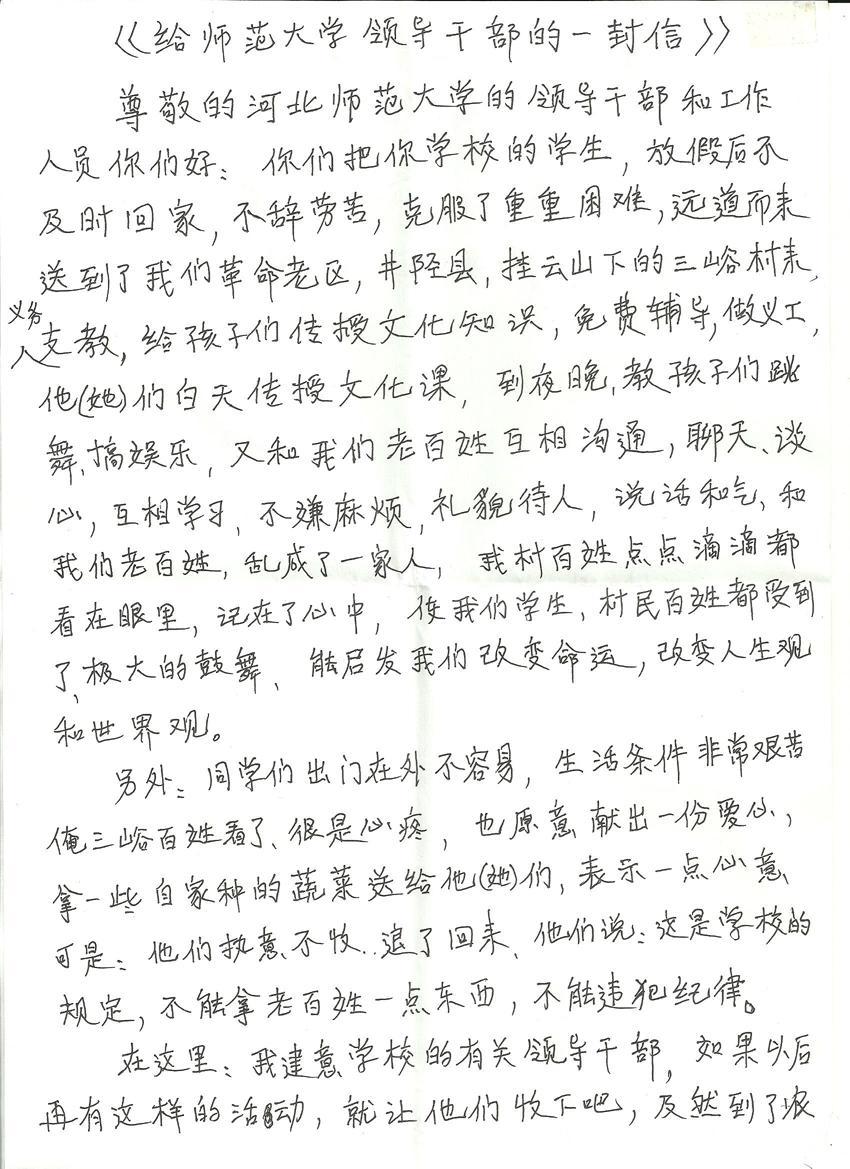 《给师范大学领导干部的一封信》
尊敬的河北师范大学的领导干部和工作
人员你们好：你们把你学校的学生，放假后不
及时回家，不辞劳苦，克服了重重困难，远道而来
送到了我们革命老区，井陉县，挂云山下的三峪村来，
义务
支教，给孩子们传授文化知识，免费辅导，做义工，
他(她)们白天传授文化课，到夜晚，教孩子们跳
舞、搞娱乐，又和我们老百姓互相沟通，聊天、谈
心，互相学习，不嫌麻烦，礼貌待人，说话和气、和
我们老百姓，乱成了一家人，我村百姓点点滴滴都
看在眼里，记在了心中，使我们学生，村民百姓都受到
了、极大的鼓舞、能启发我们改变命运，改变人生观
和世界观。
另外：同学们出门在外不容易，生活条件非常艰苦
俺三峪百姓看了、很是心疼，也原意献出一份爱心，
拿一些自家种的蔬菜送给他(她)们，表示一点心意、
可是：他们执意不收..退了回来、他们说：这是学校的
规定，不能拿老百姓一点东西，不能违犯纪律。
在这里：我建意学校的有关领导干部，如果以后
再有这样的活动，就让他们收下吧，及然到了农